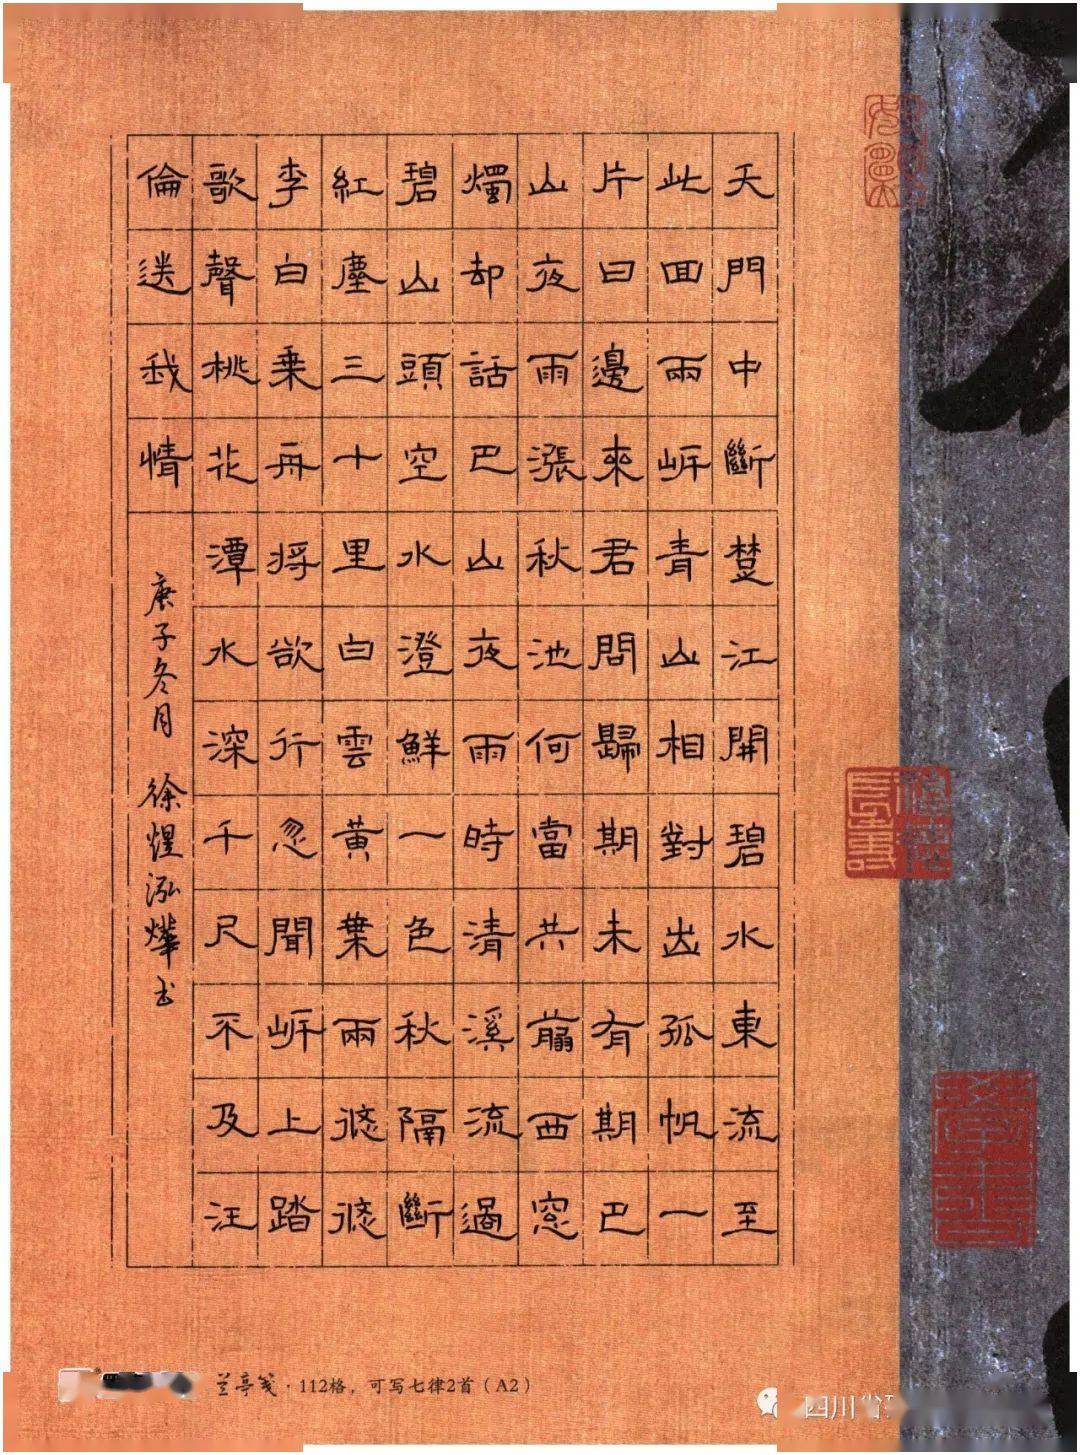 天門中斷楚江開碧水東流至
此回兩岸青山相對出孤帆一
片日邊來君問歸期未有期巴
山夜雨漲秋池何當共翦西窓
燭却話巴山夜雨時清溪流過
碧山頭空水澄鮮一色秋隔斷
紅塵三十里白雲黃葉兩悠悠
李白乘舟將欲行忽聞岸上踏
歌聲桃花潭水深千尺不及汪
倫送我情
庚子冬月 徐煜泓燁书
兰亭笺·112格，可写七律2首（A2）
四川省